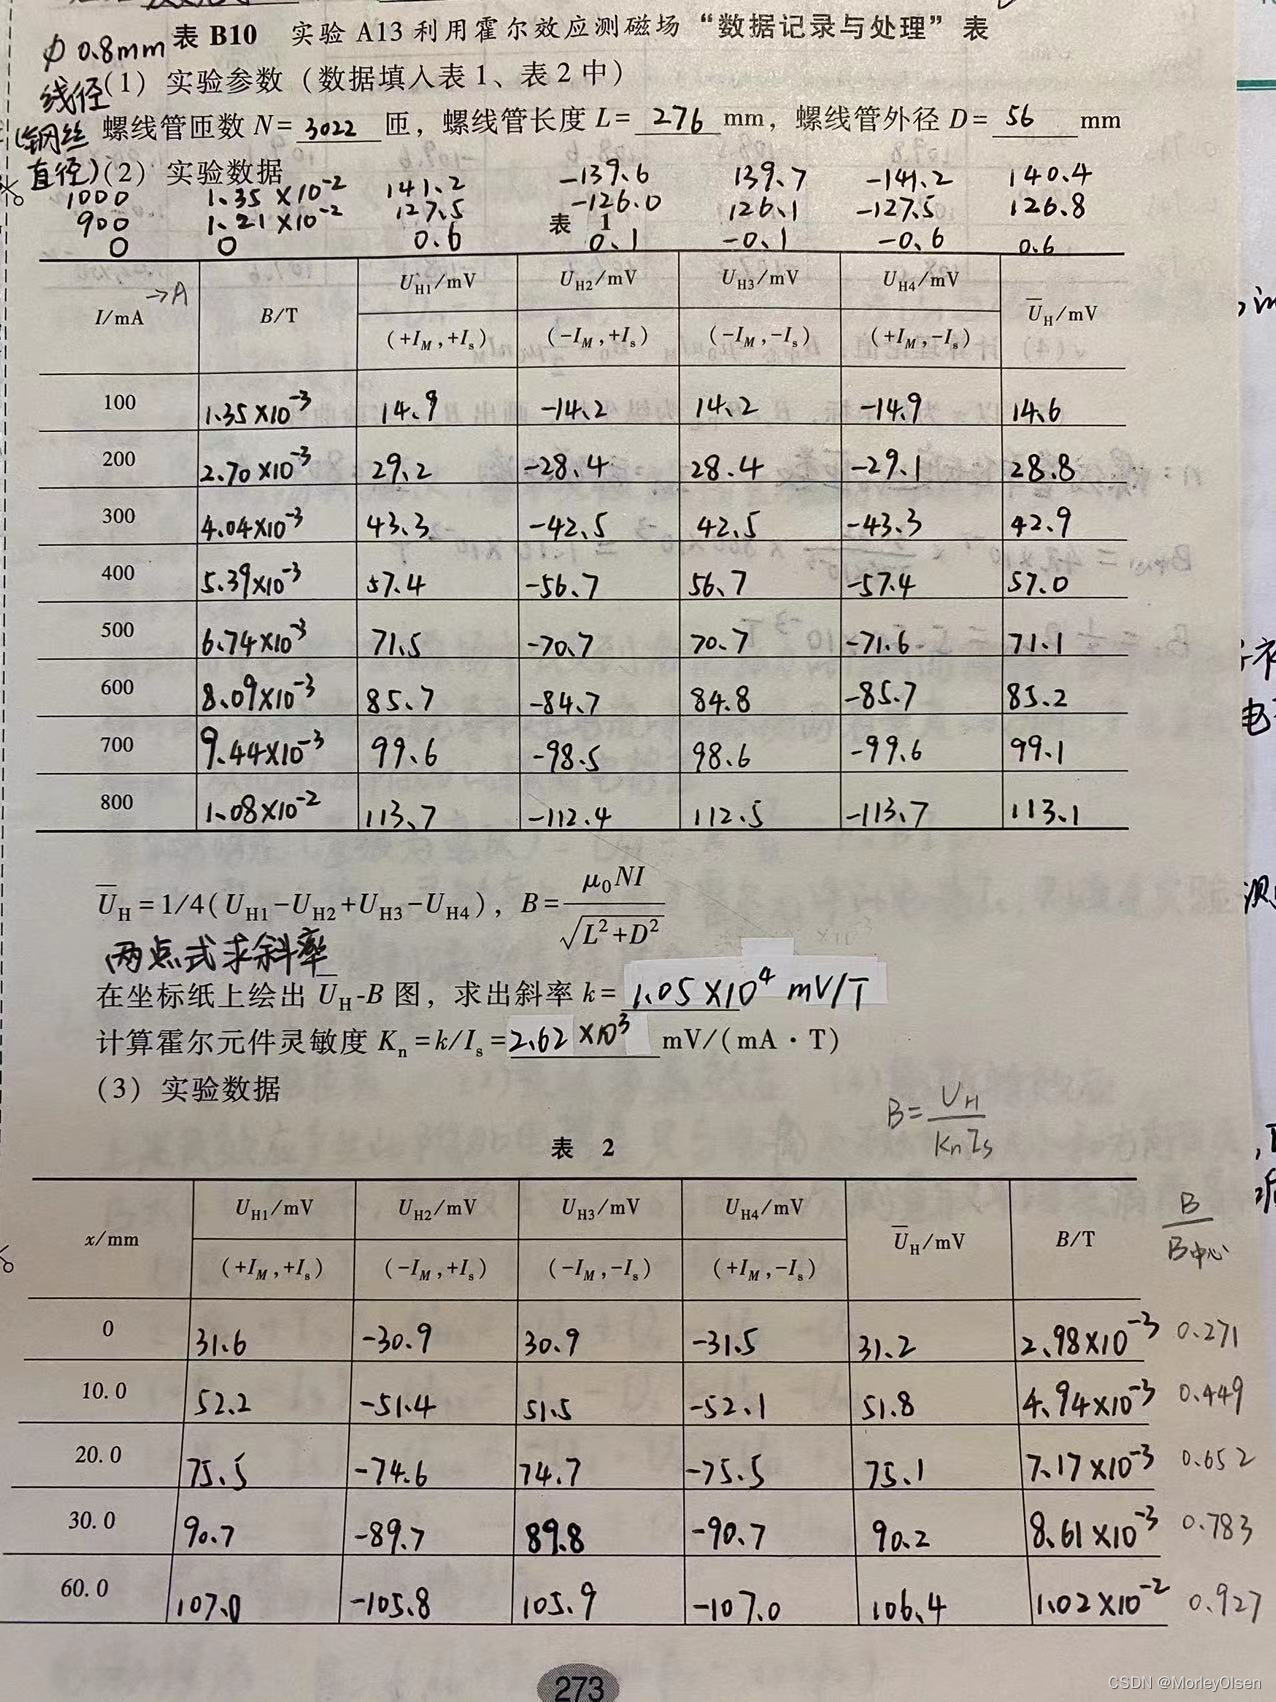 φ 0.8mm 表 B10 实验 A13 利用霍尔效应测磁场“数据记录与处理”表
线径 (1) 实验参数（数据填入表 1、表 2 中）
(钢丝 螺线管匝数 N= 3022 匝，螺线管长度 L= 276 mm，螺线管外径 D= 56 mm
直径) (2) 实验数据
1000 1.35×10⁻² 141.2 -139.6 139.7 -141.2 140.4
900 1.21×10⁻² 127.5 -126.0 126.1 -127.5 126.8
表 1
0 0 0.6 0.1 -0.1 -0.6 0.6
I/mA →A B/T U_H1/mV U_H2/mV U_H3/mV U_H4/mV U̅_H/mV
(+I_M,+I_s) (-I_M,+I_s) (-I_M,-I_s) (+I_M,-I_s)
100 1.35×10⁻³ 14.9 -14.2 14.2 -14.9 14.6
200 2.70×10⁻³ 29.2 -28.4 28.4 -29.1 28.8
300 4.04×10⁻³ 43.3 -42.5 42.5 -43.3 42.9
400 5.39×10⁻³ 57.4 -56.7 56.7 -57.4 57.0
500 6.74×10⁻³ 71.5 -70.7 70.7 -71.6 71.1
600 8.09×10⁻³ 85.7 -84.7 84.8 -85.7 85.2
700 9.44×10⁻³ 99.6 -98.5 98.6 -99.6 99.1
800 1.08×10⁻² 113.7 -112.4 112.5 -113.7 113.1
U̅_H=1/4(U_H1-U_H2+U_H3-U_H4)，B=μ₀NI/√(L²+D²)
两点式求斜率
在坐标纸上绘出 U̅_H-B 图，求出斜率 k= 1.05×10⁴ mV/T
计算霍尔元件灵敏度 K_n=k/I_s= 2.62×10³ mV/(mA·T)
(3) 实验数据
B=U_H/(K_n I_s)
表 2
x/mm U_H1/mV U_H2/mV U_H3/mV U_H4/mV U̅_H/mV B/T B/B中心
(+I_M,+I_s) (-I_M,+I_s) (-I_M,-I_s) (+I_M,-I_s)
0 31.6 -30.9 30.9 -31.5 31.2 2.98×10⁻³ 0.271
10.0 52.2 -51.4 51.5 -52.1 51.8 4.94×10⁻³ 0.449
20.0 75.5 -74.6 74.7 -75.5 75.1 7.17×10⁻³ 0.652
30.0 90.7 -89.7 89.8 -90.7 90.2 8.61×10⁻³ 0.783
60.0 107.0 -105.8 105.9 -107.0 106.4 1.02×10⁻² 0.927
273
CSDN @MorleyOlsen